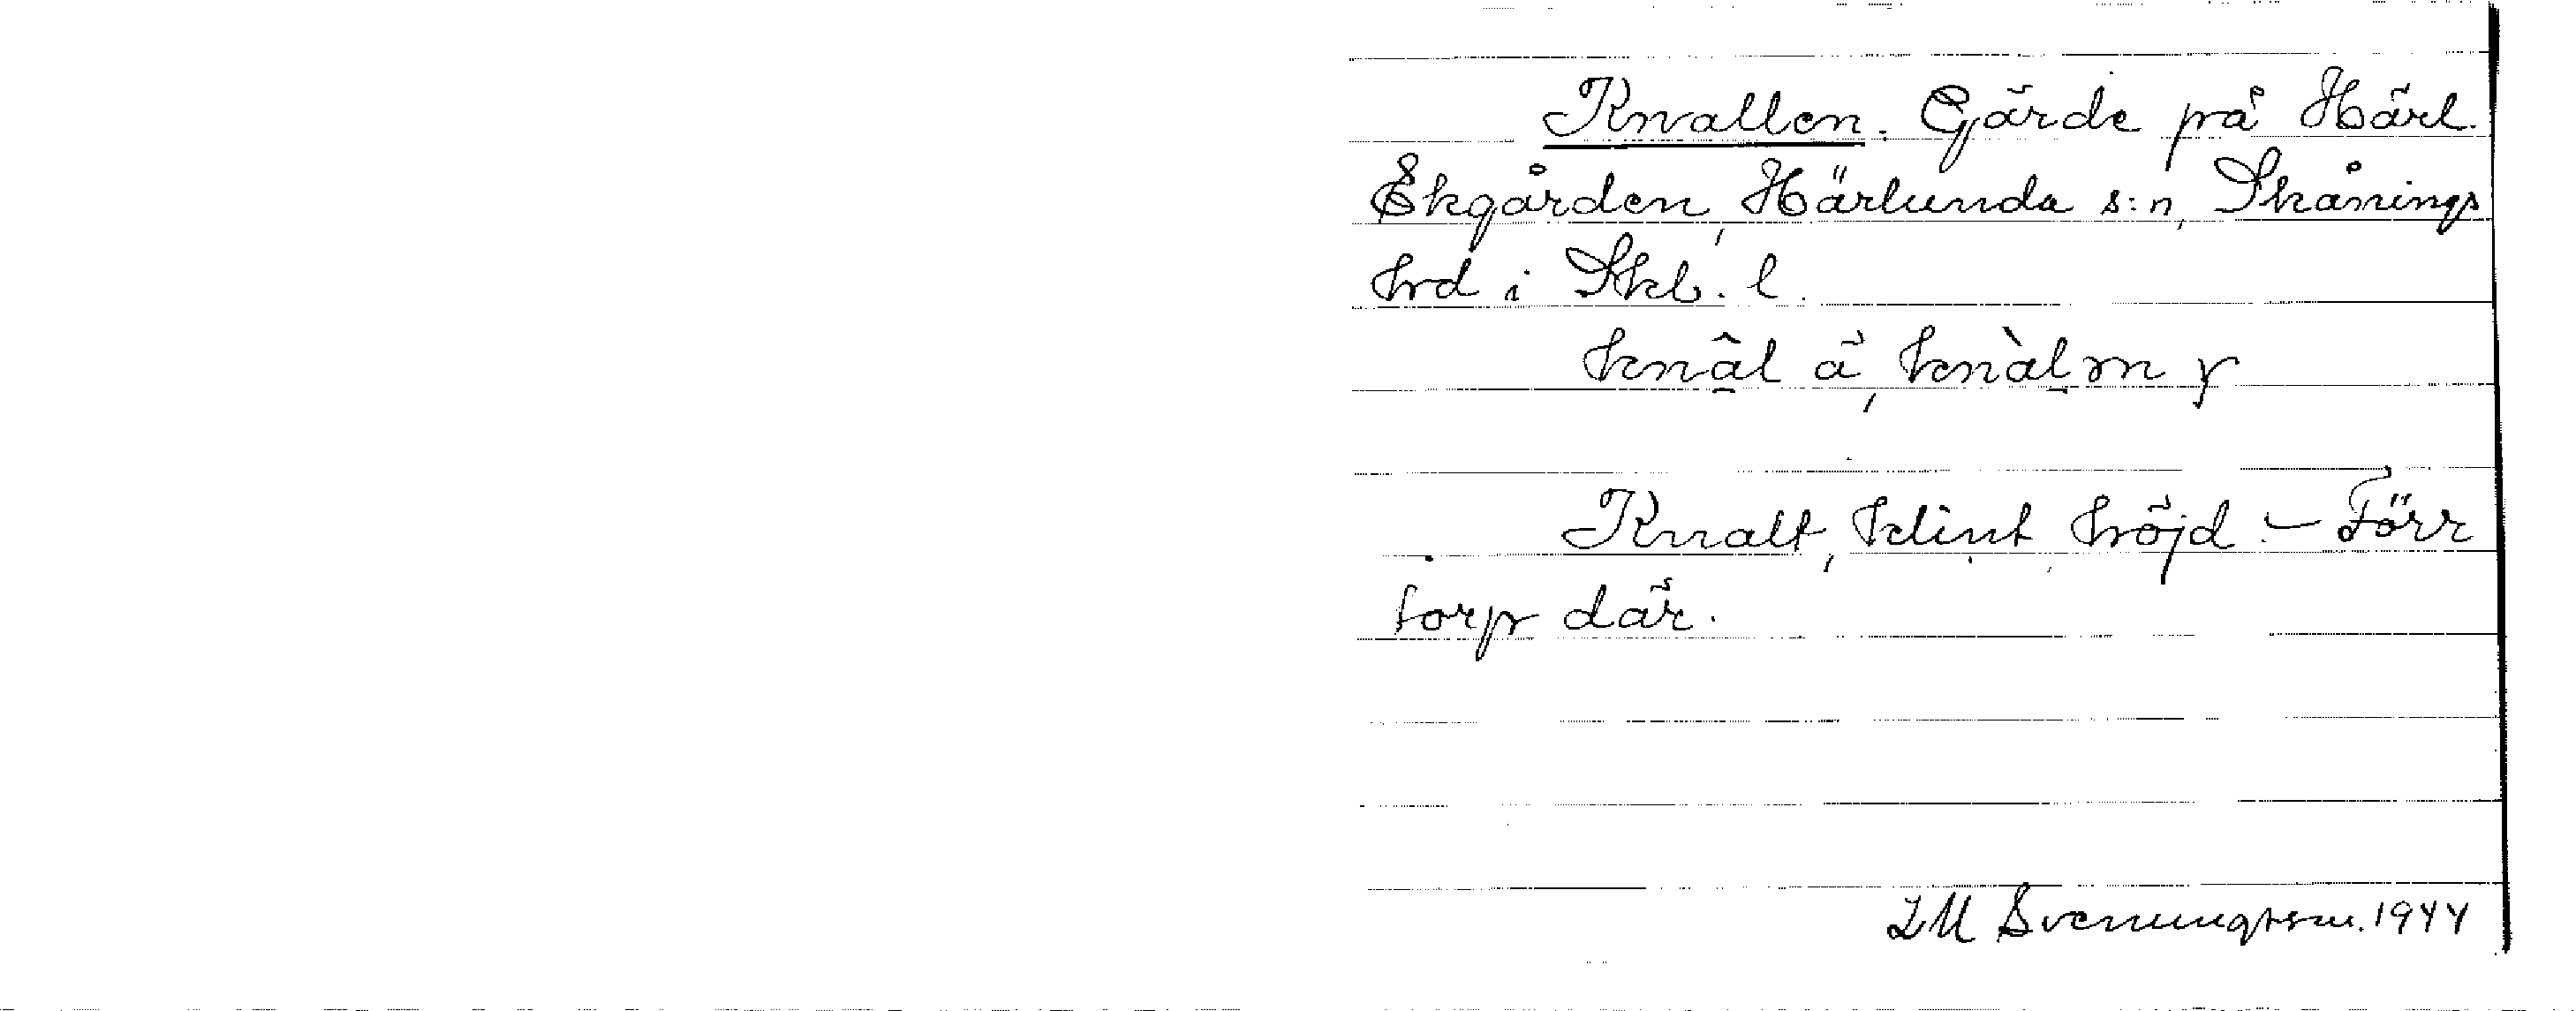 Knallen. Gärde på Härl.
Ekgården, Härlunda s:n, Skånings
hrd i Skb. l.
knâl ä, knàl m y
Knalt, klint, höjd. – Förr
torp där.
LM Svenungsson. 1944